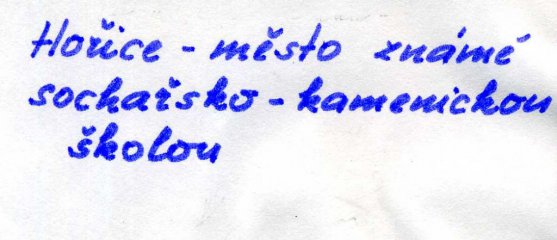 Hořice - město známé
sochařsko - kamenickou
školou